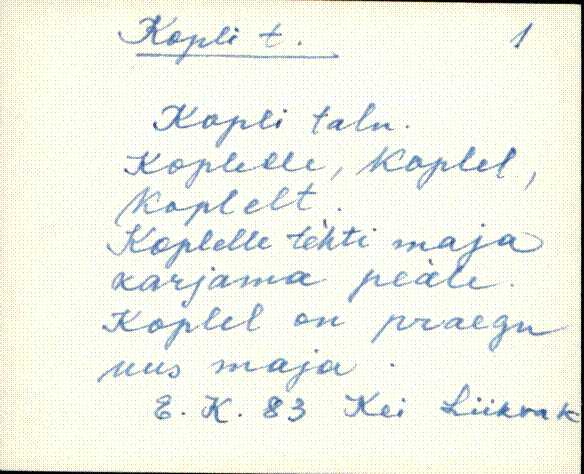 Kopli t. 1
Kopli talu.
Koplelle, Koplel,
Koplelt.
Koplelle tehti maja
karjama peäle.
Koplel on praegu
uus maja.
E. K. 83 Kei Liikvak